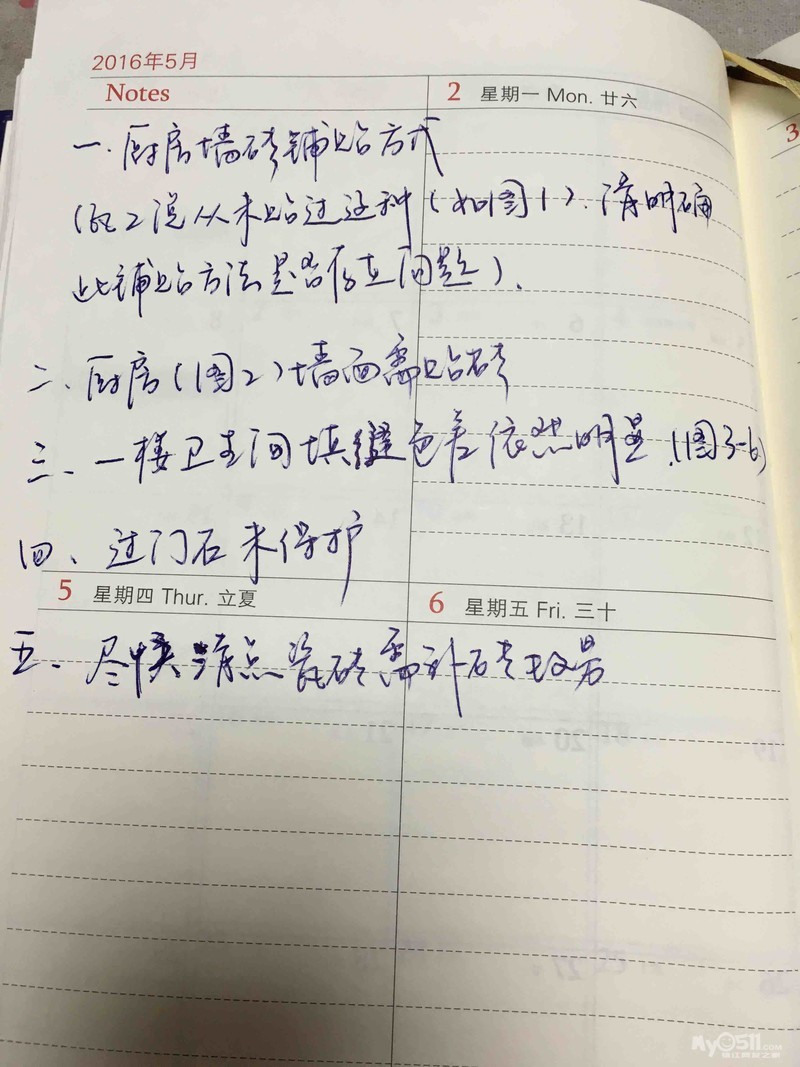 2016年5月
Notes
2 星期一 Mon. 廿六
3
一.厨房墙砖铺贴方式
(瓦工说从未贴过这种(如图1).请明确
此铺贴方法是否存在问题).
二、厨房(图2)墙面需贴砖
三、一楼卫生间填缝色差依然明显.(图3-6)
四、过门石未保护
5 星期四 Thur. 立夏
6 星期五 Fri. 三十
五、尽快清点瓷砖需补砖数量
My0511.COM